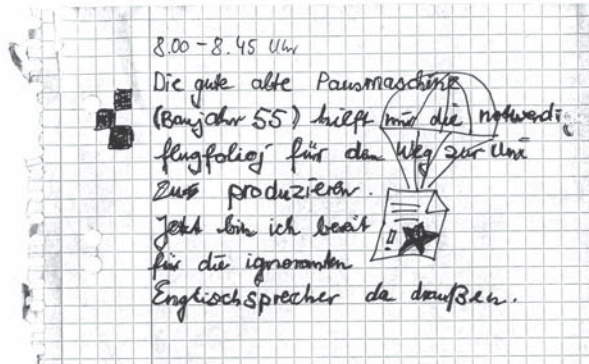 8.00 - 8.45 Uhr
Die gute alte Pausmaschine
(Baujahr 55) hilft mir die notwendi
flugfolioj für den Weg zur Uni
zu produzieren.
Jetzt bin ich bereit
für die ignoranten
Englischsprecher da draußen.
!!